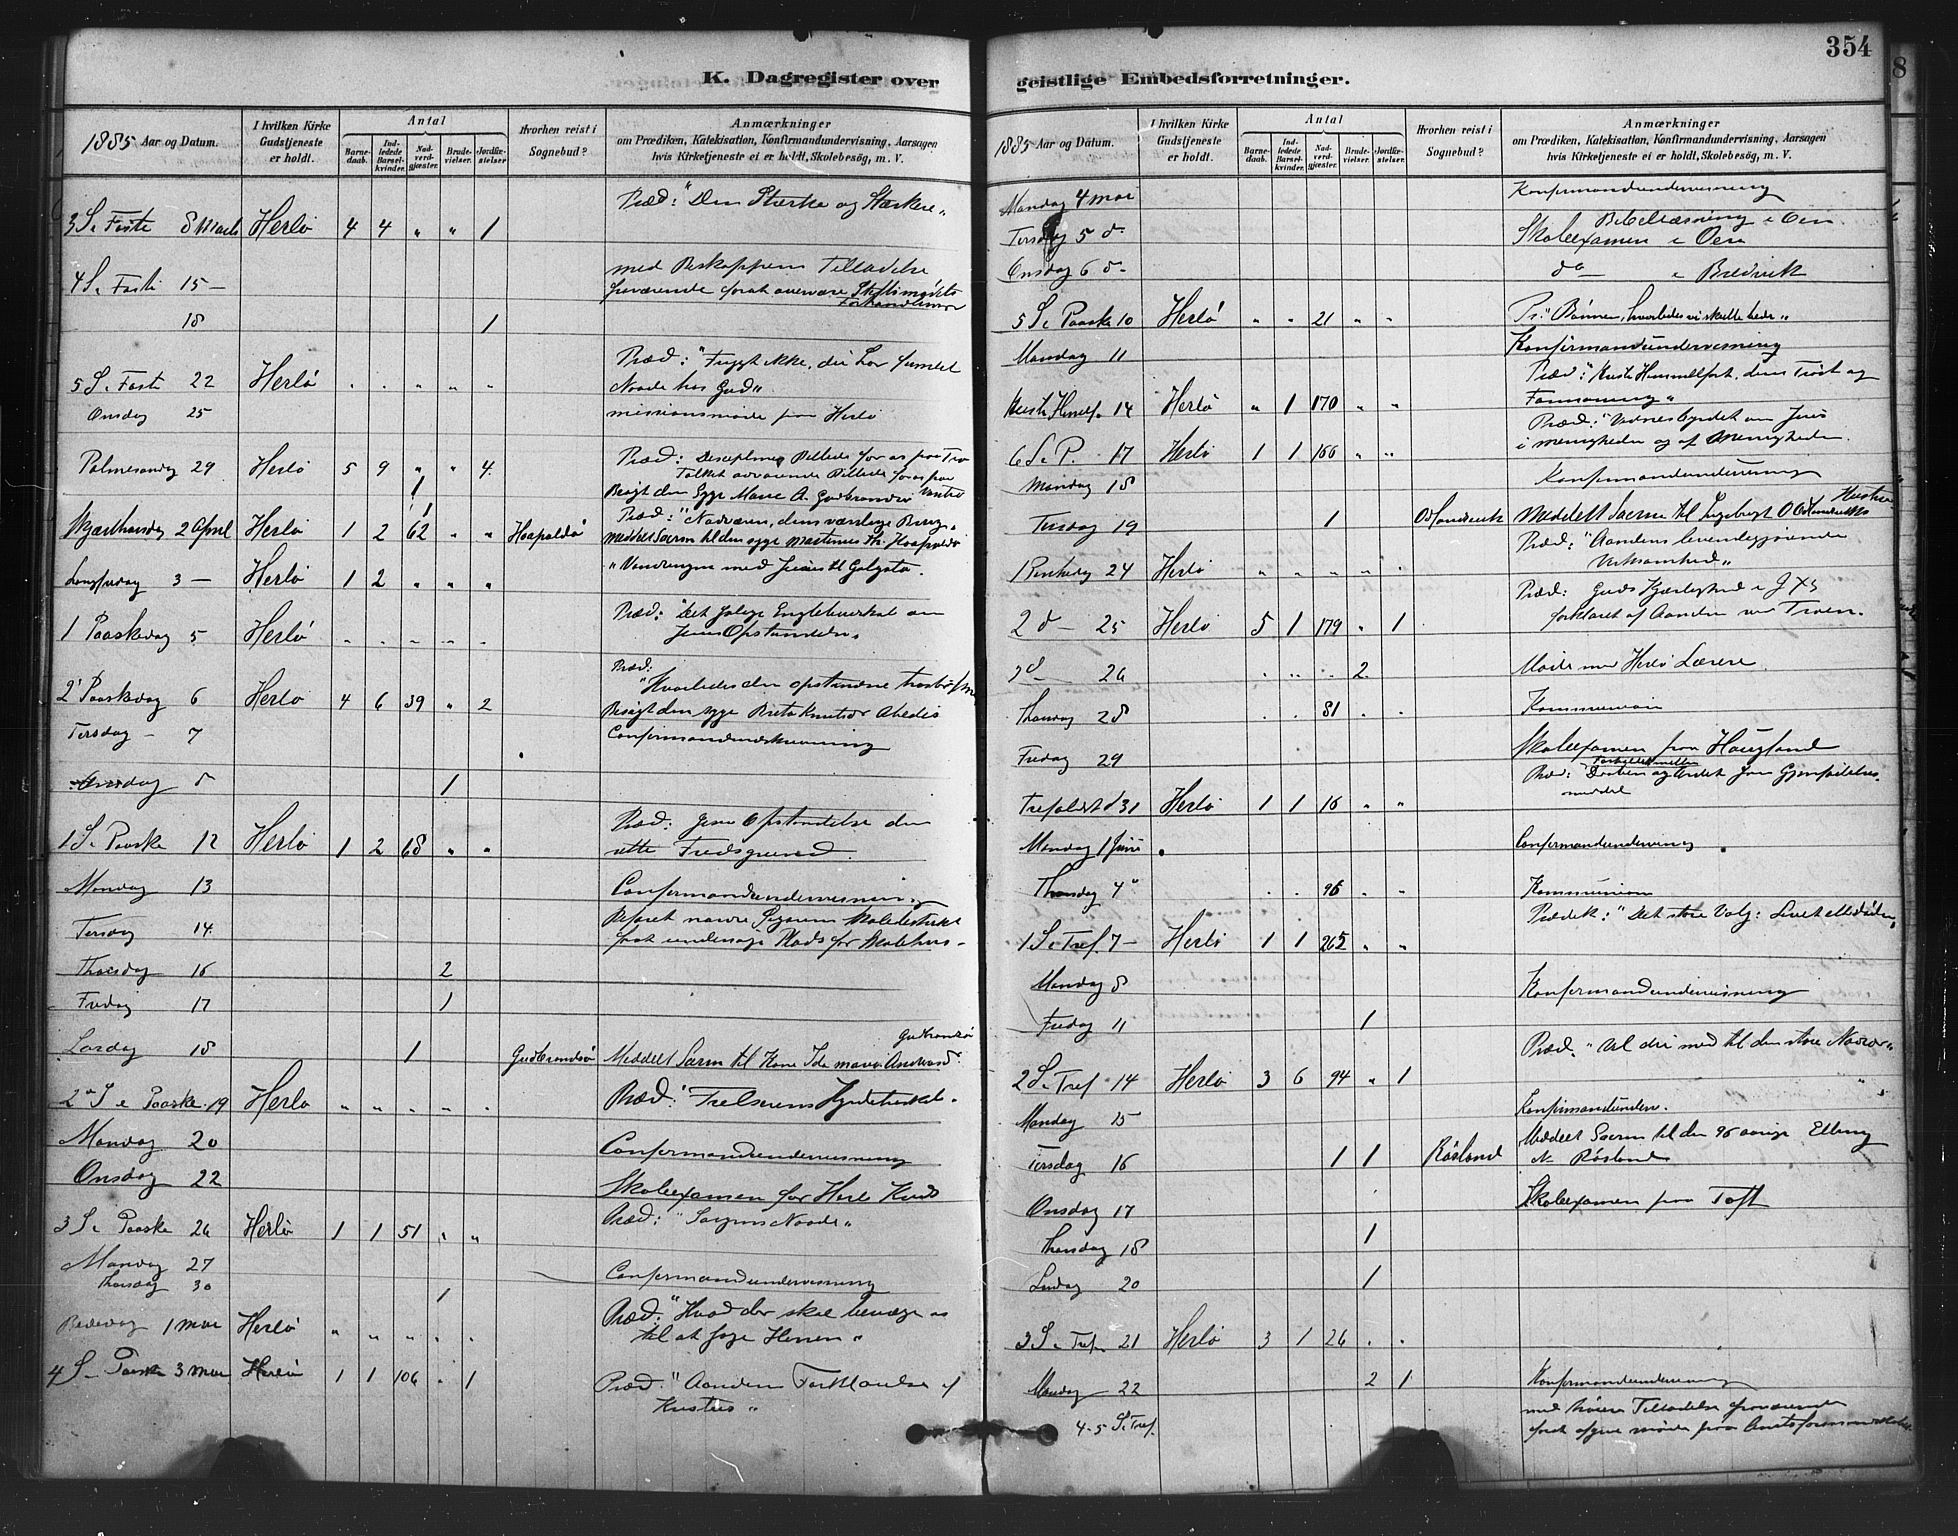 354
K. Dagregister over
1885 Aar og Datum.
I hvilken Kirke Gudstjeneste er holdt.
Antal
Barnedaab.
Indledede Barselkvinder.
Nadverdgjæster.
Brudevielser.
Jordfæstelser
Hvorhen reist i Sognebud?
Anmærkninger
om Prædiken, Katekisation, Konfirmandundervisning, Aarsagen
hvis Kirketjeneste ei er holdt, Skolebesøg, m. V.
Præd: "Den Stærke og Stærkere"
3 S. i Faste 8 Marts Herlø 4 4 " " 1
med Biskoppens Tilladelse
4 S. i Faste 15 — fraværende forat overvære Stiftsmødets
Forhandlinger
18 1
Præd: "Frygt ikke, du har fundet
5 S. i Faste 22 Herlø " " " " " Naade hos Gud"
Onsdag 25 missionsmøde paa Herlø
Palmesøndag 29 Herlø 5 9 " " 4
1 Besøgt den syge Marie A. Gudbrandsø
Præd: "Nadveren, dens
Skjærthorsdag 2 April Herlø 1 2 62 " " Hoapoldø
Langfredag 3 — Herlø 1 2 " " " "Vandringen med Jesus til Golgata.
Præd: "Det
1 Paaskedag 5 Herlø " " " " " Jesu Opstandelse"
Præd:
"Hvorledes den opstandne
2 Paaskedag 6 Herlø 4 6 39 " 2 Besøgt den syge
Tirsdag — 7 Confirmandundervisning
Onsdag 8 1
Præd: Jesu Opstandelse den
1 S. i Paaske 12 Herlø 1 2 68 " " rette Fredsgrund.
Mandag 13 Confirmandundervisning
Tirsdag 14 forat undersøge Plads for Skolehus
Thorsdag 16 2
Fredag 17 1
Gudbrandsø
Lørdag 18 1 Gudbrandsø Meddelt Sacrm til Kone
2 S. i Paaske 19 Herlø " " " " " Præd: Frelserens Hyrde
Mandag 20 Confirmandundervisning
Onsdag 22 Skoleexamen for Herlø Kreds
3 S. i Paaske 26 Herlø 1 1 51 " " Præd: "Sorgens Naade"
Mandag 27 Confirmandundervisning
Thorsdag 30 1
Præd: "Hvad der skal bevæge os
Bededag 1 Mai Herlø " " " " " til at søge Herren"
4 S. i Paaske 3 Mai Herlø 1 1 106 " 1 Præd: "Aandens Forklarelse af
Kristus"
geistlige Embedsforretninger.
1885 Aar og Datum.
I hvilken Kirke Gudstjeneste er holdt.
Antal
Barnedaab.
Indledede Barselkvinder.
Nadverdgjæster.
Brudevielser.
Jordfæstelser.
Hvorhen reist i Sognebud?
Anmærkninger
om Prædiken, Katekisation, Konfirmandundervisning, Aarsagen
hvis Kirketjeneste ei er holdt, Skolebesøg, m. V.
Mandag 4 Mai Konfirmandundervisning
Bibellæsning i Oen
Tirsdag 5 d. Skoleexamen i Oen
Onsdag 6 d. do — i Bredvik
5 S. i Paaske 10 Herlø " " 21 " " Pr: "Bønnen, hvorledes vi skulle bede"
Mandag 11 Konfirmandundervisning
Præd: "Kristi Himmelfart, dens Trøst og
Kristi Himmelf. 14 Herlø " 1 170 " " Formaning"
Præd: "Vidnesbyrdet om Jesus
6 S. i P. 17 Herlø 1 1 166 " " i Menigheden og af Menigheden.
Mandag 18 Konfirmandundervisning
Tirsdag 19 1 Meddelt Sacrm til Ingeborg
Præd: "Aandens levendegjørende
1 Pintsedag 24 Herlø " " " " " Virksomhed"
Præd: Guds Kjærlighed i
2 d — 25 Herlø 5 1 179 " 1 forklaret af Aanden
3 d — 26 " " " 2 Møde med Herlø Lærere
Thorsdag 28 " " 81 " " Kommunion
Fredag 29 Skoleexamen paa Haugland
Trefoldst d 31 Herlø 1 1 16 " "
Mandag 1 Juni Confirmandunderving
Thorsdag 4 " " 96 " " Kommunion
Prædik: "Det store Valg: Livet eller Døden"
1 S. i Tref. 7 — Herlø 1 1 265 " "
Mandag 8 Konfirmandundervisning
Fredag 11 1
Præd: med til den store Nadver"
2 S. i Tref. 14 Herlø 3 6 94 " 1
Mandag 15 Konfirmandunderv.
Meddelt Sacrm til den 96 aarige
Tirsdag 16 1 1 Røsland N. Røsland
Onsdag 17 Skoleexamen paa Toft
Thorsdag 18 1
Lørdag 20 1
3 S. i Tref. 21 Herlø 3 1 26 " "
Mandag 22 2 1 Konfirmandundervisning
4-5 S. i Tref. med høiere Tilladelse fraværende